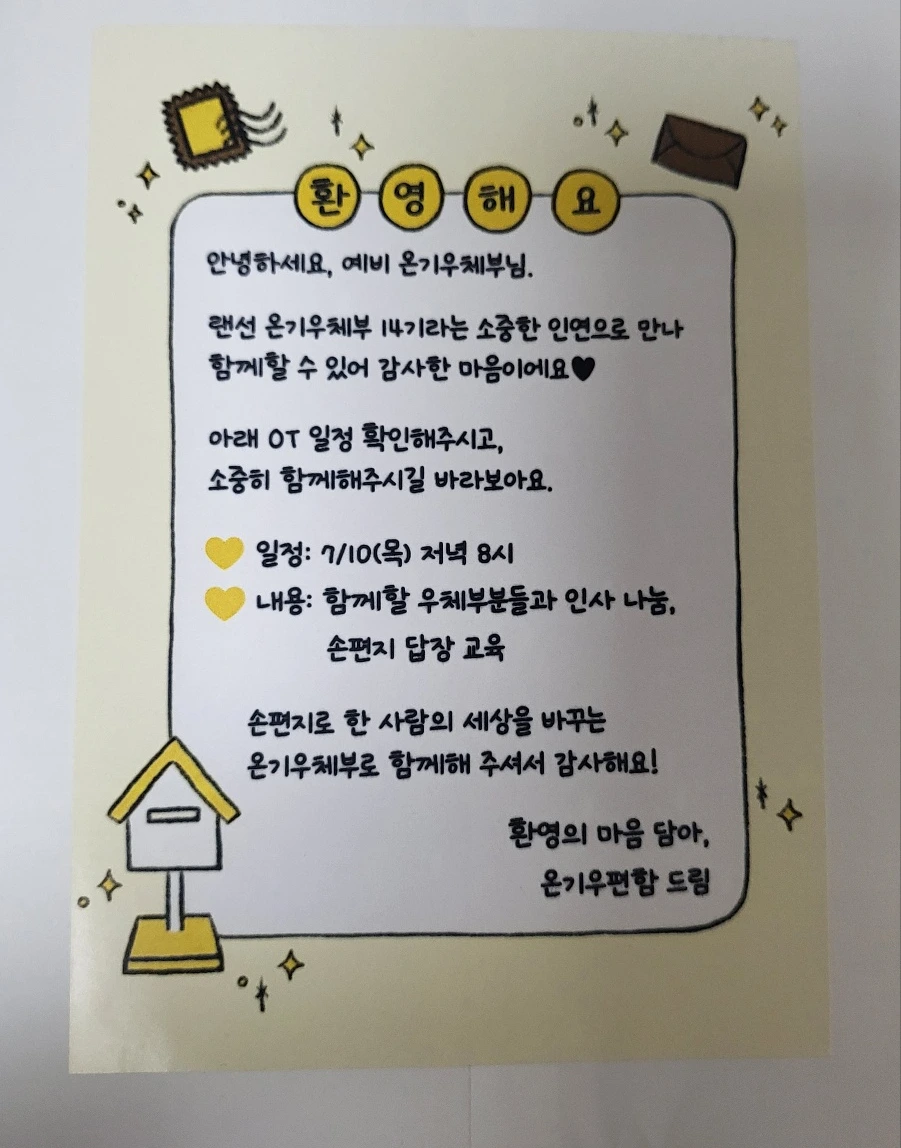 환영해요
안녕하세요, 예비 온기우체부님.
랜선 온기우체부 14기라는 소중한 인연으로 만나
함께할 수 있어 감사한 마음이에요♥
아래 OT 일정 확인해주시고,
소중히 함께해주시길 바라보아요.
💛 일정: 7/10(목) 저녁 8시
💛 내용: 함께할 우체부분들과 인사 나눔,
손편지 답장 교육
손편지로 한 사람의 세상을 바꾸는
온기우체부로 함께해 주셔서 감사해요!
환영의 마음 담아,
온기우편함 드림